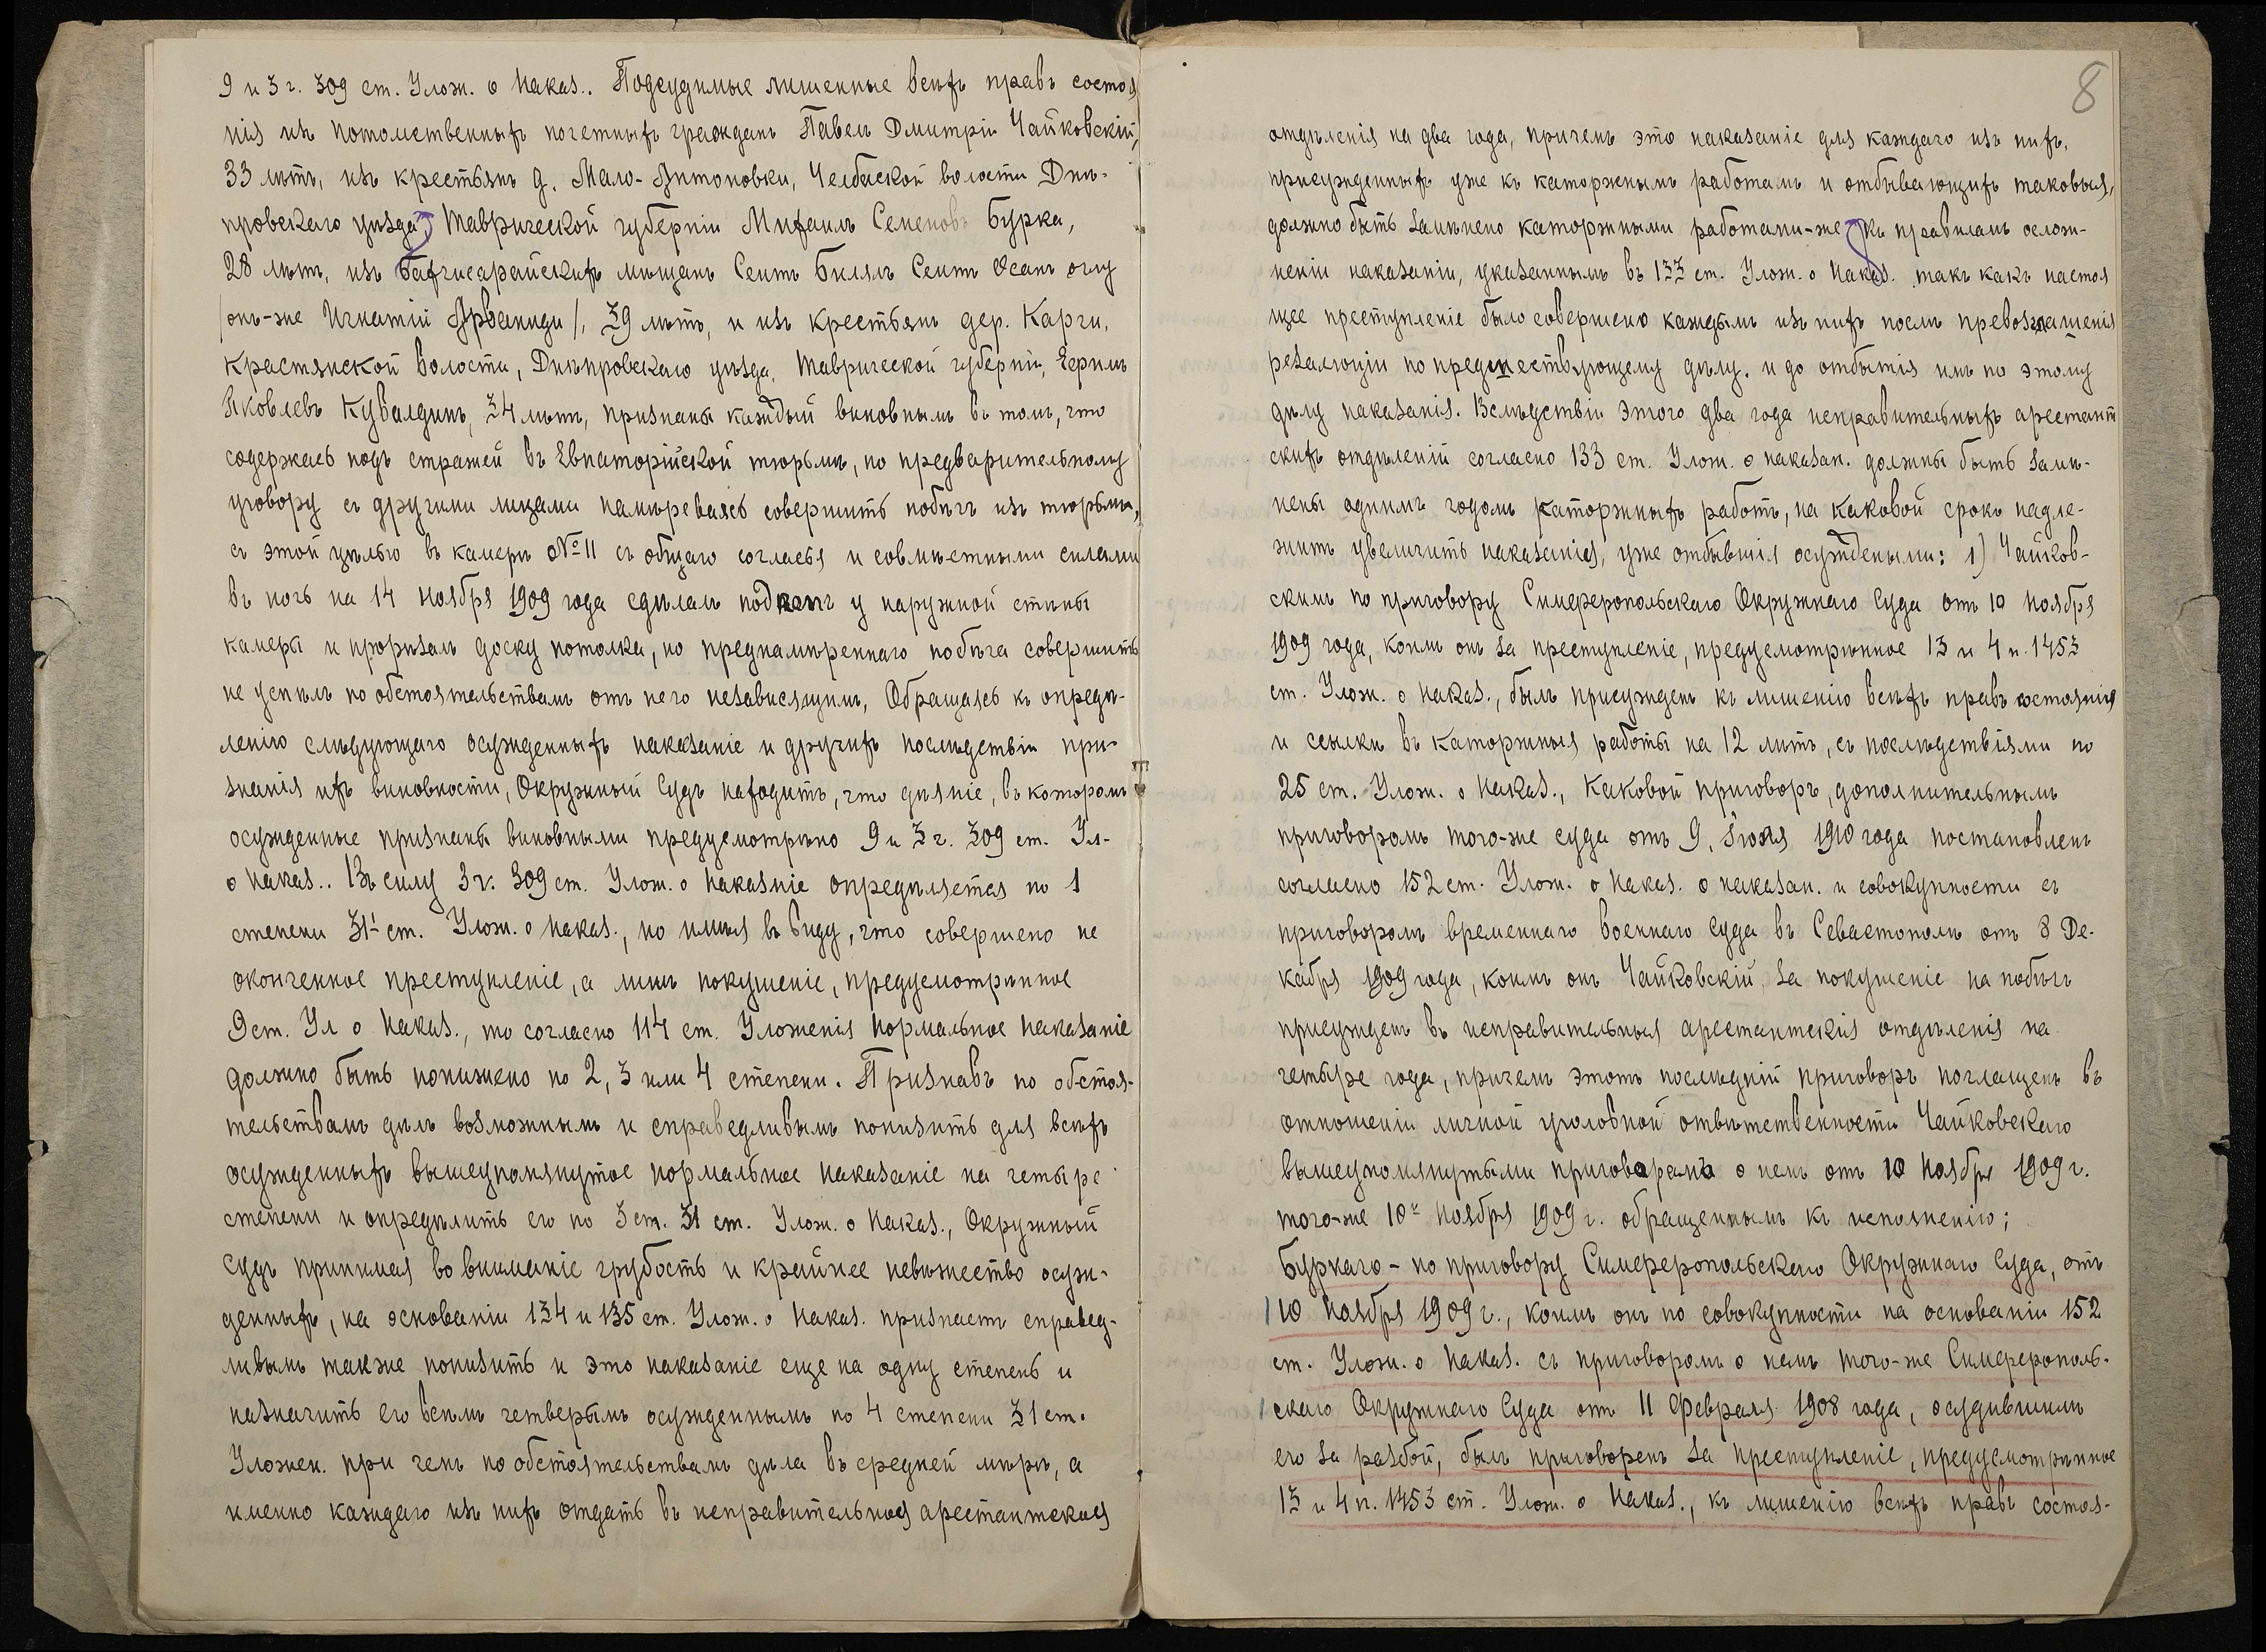 9 и 3 г. 309 ст. Улож. о Наказ.. Подсудимые лишенные всѣхъ правъ состоя
нія изъ потомственныхъ почетныхъ гражданъ Павелъ Дмитрій Чайковскій,
33 лѣтъ, изъ крестьянъ д. Мало-Антоновки, Челбаской волости Днѣ-
провскаго уѣзда, Таврической губерніи Михаилъ Семеновъ Бурка,
28 лѣтъ, изъ Бахчисарайскихъ мѣщанъ Сеитъ Билялъ Сеитъ Осанъ оглу
/онъ-же Игнатій Арваниди/, 39 лѣтъ, и изъ крестьянъ дер. Карги,
Крастянской волости, Днѣпровскаго уѣзда, Таврической губерніи, Ефримъ
Яковлевъ Кувалдинъ, 34 лѣтъ, признаны каждый виновнымъ въ томъ, что
содержась подъ стражей въ Евпаторійской тюрьмѣ, по предварительному
уговору съ другими лицами намѣреваясь совершить побѣгъ изъ тюрьмы,
съ этой цѣлью въ камерѣ №11 съ общаго согласья и совмѣстными силами
въ ночь на 14 Ноября 1909 года сдѣлалъ подкопъ у наружной стѣны
камеры и прорѣзалъ доску потолка, но преднамѣреннаго побѣга совершить
не успѣлъ по обстоятельствамъ отъ него независящимъ, Обращаясь къ опредѣ-
ленію слѣдующаго осужденныхъ наказаніе и другихъ послѣдствій при-
знанія ихъ виновности, Окружный Судъ находитъ, что дѣяніе, въ которомъ
осужденные признаны виновными предусмотрѣно 9 и 3 г. 309 ст. Ул-
о Наказ.. Въ силу 3 г. 309 ст. Улож. о Наказніе опредѣляется по 1
степени 31¹ ст. Улож. о Наказ., но имѣя въ виду, что совершено не
оконченное преступленіе, а лишь покушеніе, предусмотрѣнное
9 ст. Ул о Наказ., то согласно 114 ст. Уложенія Нормальное Наказаніе
должно быть понижено по 2, 3 или 4 степени. Признавъ по обстоя-
тельствамъ дѣлъ возможнымъ и справедливымъ понизить для всѣхъ
осужденныхъ вышеупомянутое нормальное наказаніе на четыре
степени и опредѣлить его по 5 ст. 31 ст. Улож. о Наказ., Окружный
Судъ принимая во вниманіе грубость и крайнее невѣжество осуж-
денныхъ, на основаніи 134 и 135 ст. Улож. о Наказ. признаетъ справед-
ливымъ также понизить и это наказаніе еще на одну степень и
назначить его всѣмъ четверымъ осужденнымъ по 4 степени 31 ст.
Уложен. при чемъ по обстоятельствамъ дѣла въ средней мѣрѣ, а
именно каждаго изъ нихъ отдать въ исправительныя арестантскія
8
отдѣленія на два года, причемъ это наказаніе для каждаго изъ нихъ,
присужденныхъ уже къ каторжнымъ работамъ и отбывающихъ таковыя,
должно быть замѣнено каторжными работами-же къ правиламъ ослож-
неніи наказаніи, указаннымъ въ 133 ст. Улож. о Наказ. такъ какъ настоя
щее преступленіе было совершено каждымъ изъ нихъ послѣ превозглашенія
резалюціи по предшествующему дѣлу, и до отбытія имъ по этому
дѣлу наказанія. Вслѣдствіи этого два года исправительныхъ арестант
скихъ отдѣленій согласно 133 ст. Улож. о наказан. должны быть замѣ-
нены однимъ годомъ каторжныхъ работъ, на каковой срокъ надле-
житъ увеличить наказанія, уже отбывшія осуждеными: 1) Чайков-
скимъ по приговору Симферопольскаго Окружнаго Суда отъ 10 Ноября
1909 года, коимъ онъ за преступленіе, предусмотрѣнное 13 и 4 п. 1453
ст. Улож. о Наказ., былъ присужденъ къ лишенію всѣхъ правъ состоянія
и ссылки въ каторжныя работы на 12 лѣтъ, съ послѣдствіями по
25 ст. Улож. о Наказ., Каковой приговоръ, дополнительнымъ
приговоромъ того-же суда отъ 9, Іюля 1910 года постановленъ
согласно 152 ст. Улож. о Наказ. о наказан. и совокупности съ
приговоромъ временнаго военнаго Суда въ Севастополѣ отъ 8 Де-
кабря 1909 года, коимъ онъ Чайковскій, за покушеніе на побѣгъ
присужденъ въ исправительныя арестантскія отдѣленія на
четыре года, причемъ этотъ послѣдній приговоръ поглащенъ въ
отношеніи личной уголовной отвѣтственности Чайковскаго
вышеупомянутыми приговорамъ о немъ отъ 10 Ноября 1909 г.
того-же 10ᵘ Ноября 1909 г. обращеннымъ къ исполненію;
Буркаго - по приговору Симферопольскаго Окружнаго Суда, отъ
10 Ноября 1909 г., коимъ онъ по совокупности на основаніи 152
ст. Улож. о Наказ. съ приговоромъ о немъ того-же Симферополь-
скаго Окружнаго Суда отъ 11 Февраля 1908 года, осудившимъ
его за разбой, былъ приговоренъ за преступленіе, предусмотрѣнное
13 и 4 п. 1453 ст. Улож. о Наказ., къ лишенію всѣхъ правъ состоя-